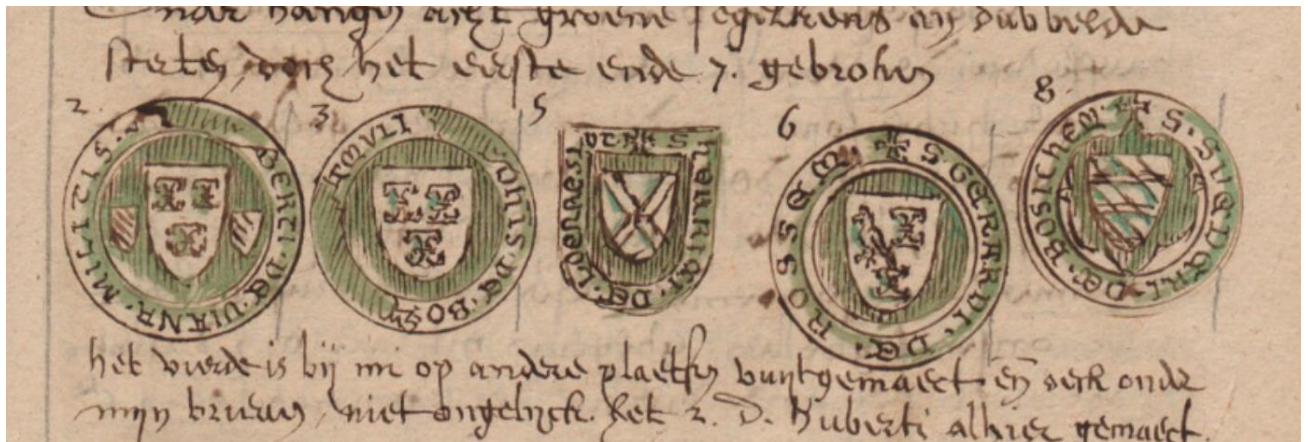 hangen acht groene segelkens in dubbelde
sterten doch het eerste ende 7. gebroken
2. 3 5 6 8
BERTI · DE · VIANA · MILITIS · S
IOHIS · DE · BO FAMULI
S HENRICI · DE · LOENRESLOTE
S · GERARDI · DE · ROSSEM ·
S · SUEDERI · DE · BOSICHEM ·
het vierde is bij mi op andere plaetsen vuytgemaect en oock onder
mijn brieven, niet ongelyck. het 2. D. Huberti alhier gemaect